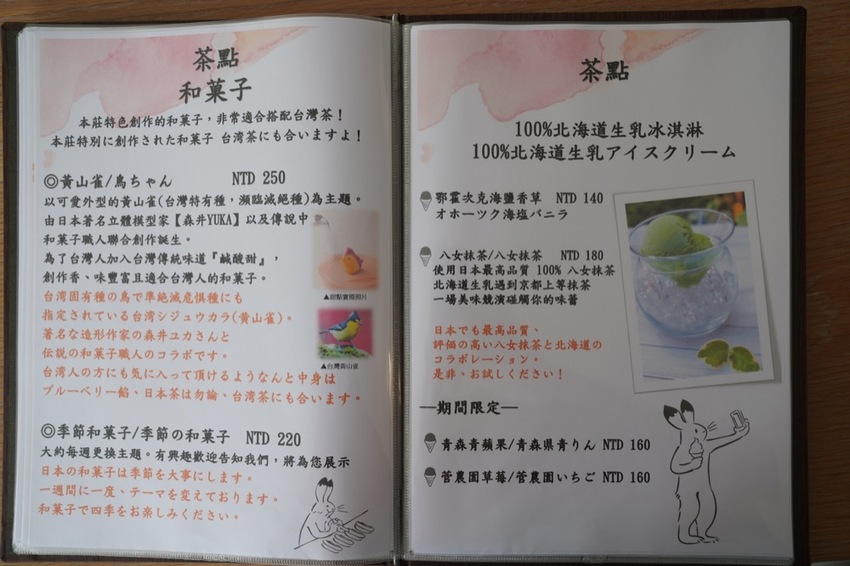 茶點
和菓子
本莊特色創作的和菓子，非常適合搭配台灣茶！
本莊特別に創作された和菓子 台湾茶にも合いますよ！
◎黃山雀/鳥ちゃん NTD 250
以可愛外型的黃山雀(台灣特有種，瀕臨滅絕種)為主題。
由日本著名立體模型家【森井YUKA】以及傳說中
和菓子職人聯合創作誕生。
為了台灣人加入台灣傳統味道『鹹酸甜』，
創作香、味豐富且適合台灣人的和菓子。
台湾固有種の鳥で準絶滅危惧種にも
指定されている台湾シジュウカラ(黃山雀)。
著名な造形作家の森井ユカさんと
伝説の和菓子職人のコラボです。
台湾人の方にも気に入って頂けるようなんと中身は
ブルーベリー餡、日本茶は勿論、台湾茶にも合います。
▲甜點實際照片
▲台灣黃山雀
◎季節和菓子/季節の和菓子 NTD 220
大約每週更換主題。有興趣歡迎告知我們，將為您展示
日本の和菓子は季節を大事にします。
一週間に一度、テーマを変えております。
和菓子で四季をお楽しみください。
茶點
100%北海道生乳冰淇淋
100%北海道生乳アイスクリーム
鄂霍次克海鹽香草 NTD 140
オホーツク海塩バニラ
八女抹茶/八女抹茶 NTD 180
使用日本最高品質 100% 八女抹茶
北海道生乳遇到京都上等抹茶
一場美味競演碰觸你的味蕾
日本でも最高品質、
評価の高い八女抹茶と北海道の
コラボレーション。
是非、お試しください！
—期間限定—
青森青蘋果/青森県青りん NTD 160
菅農園草莓/菅農園いちご NTD 160